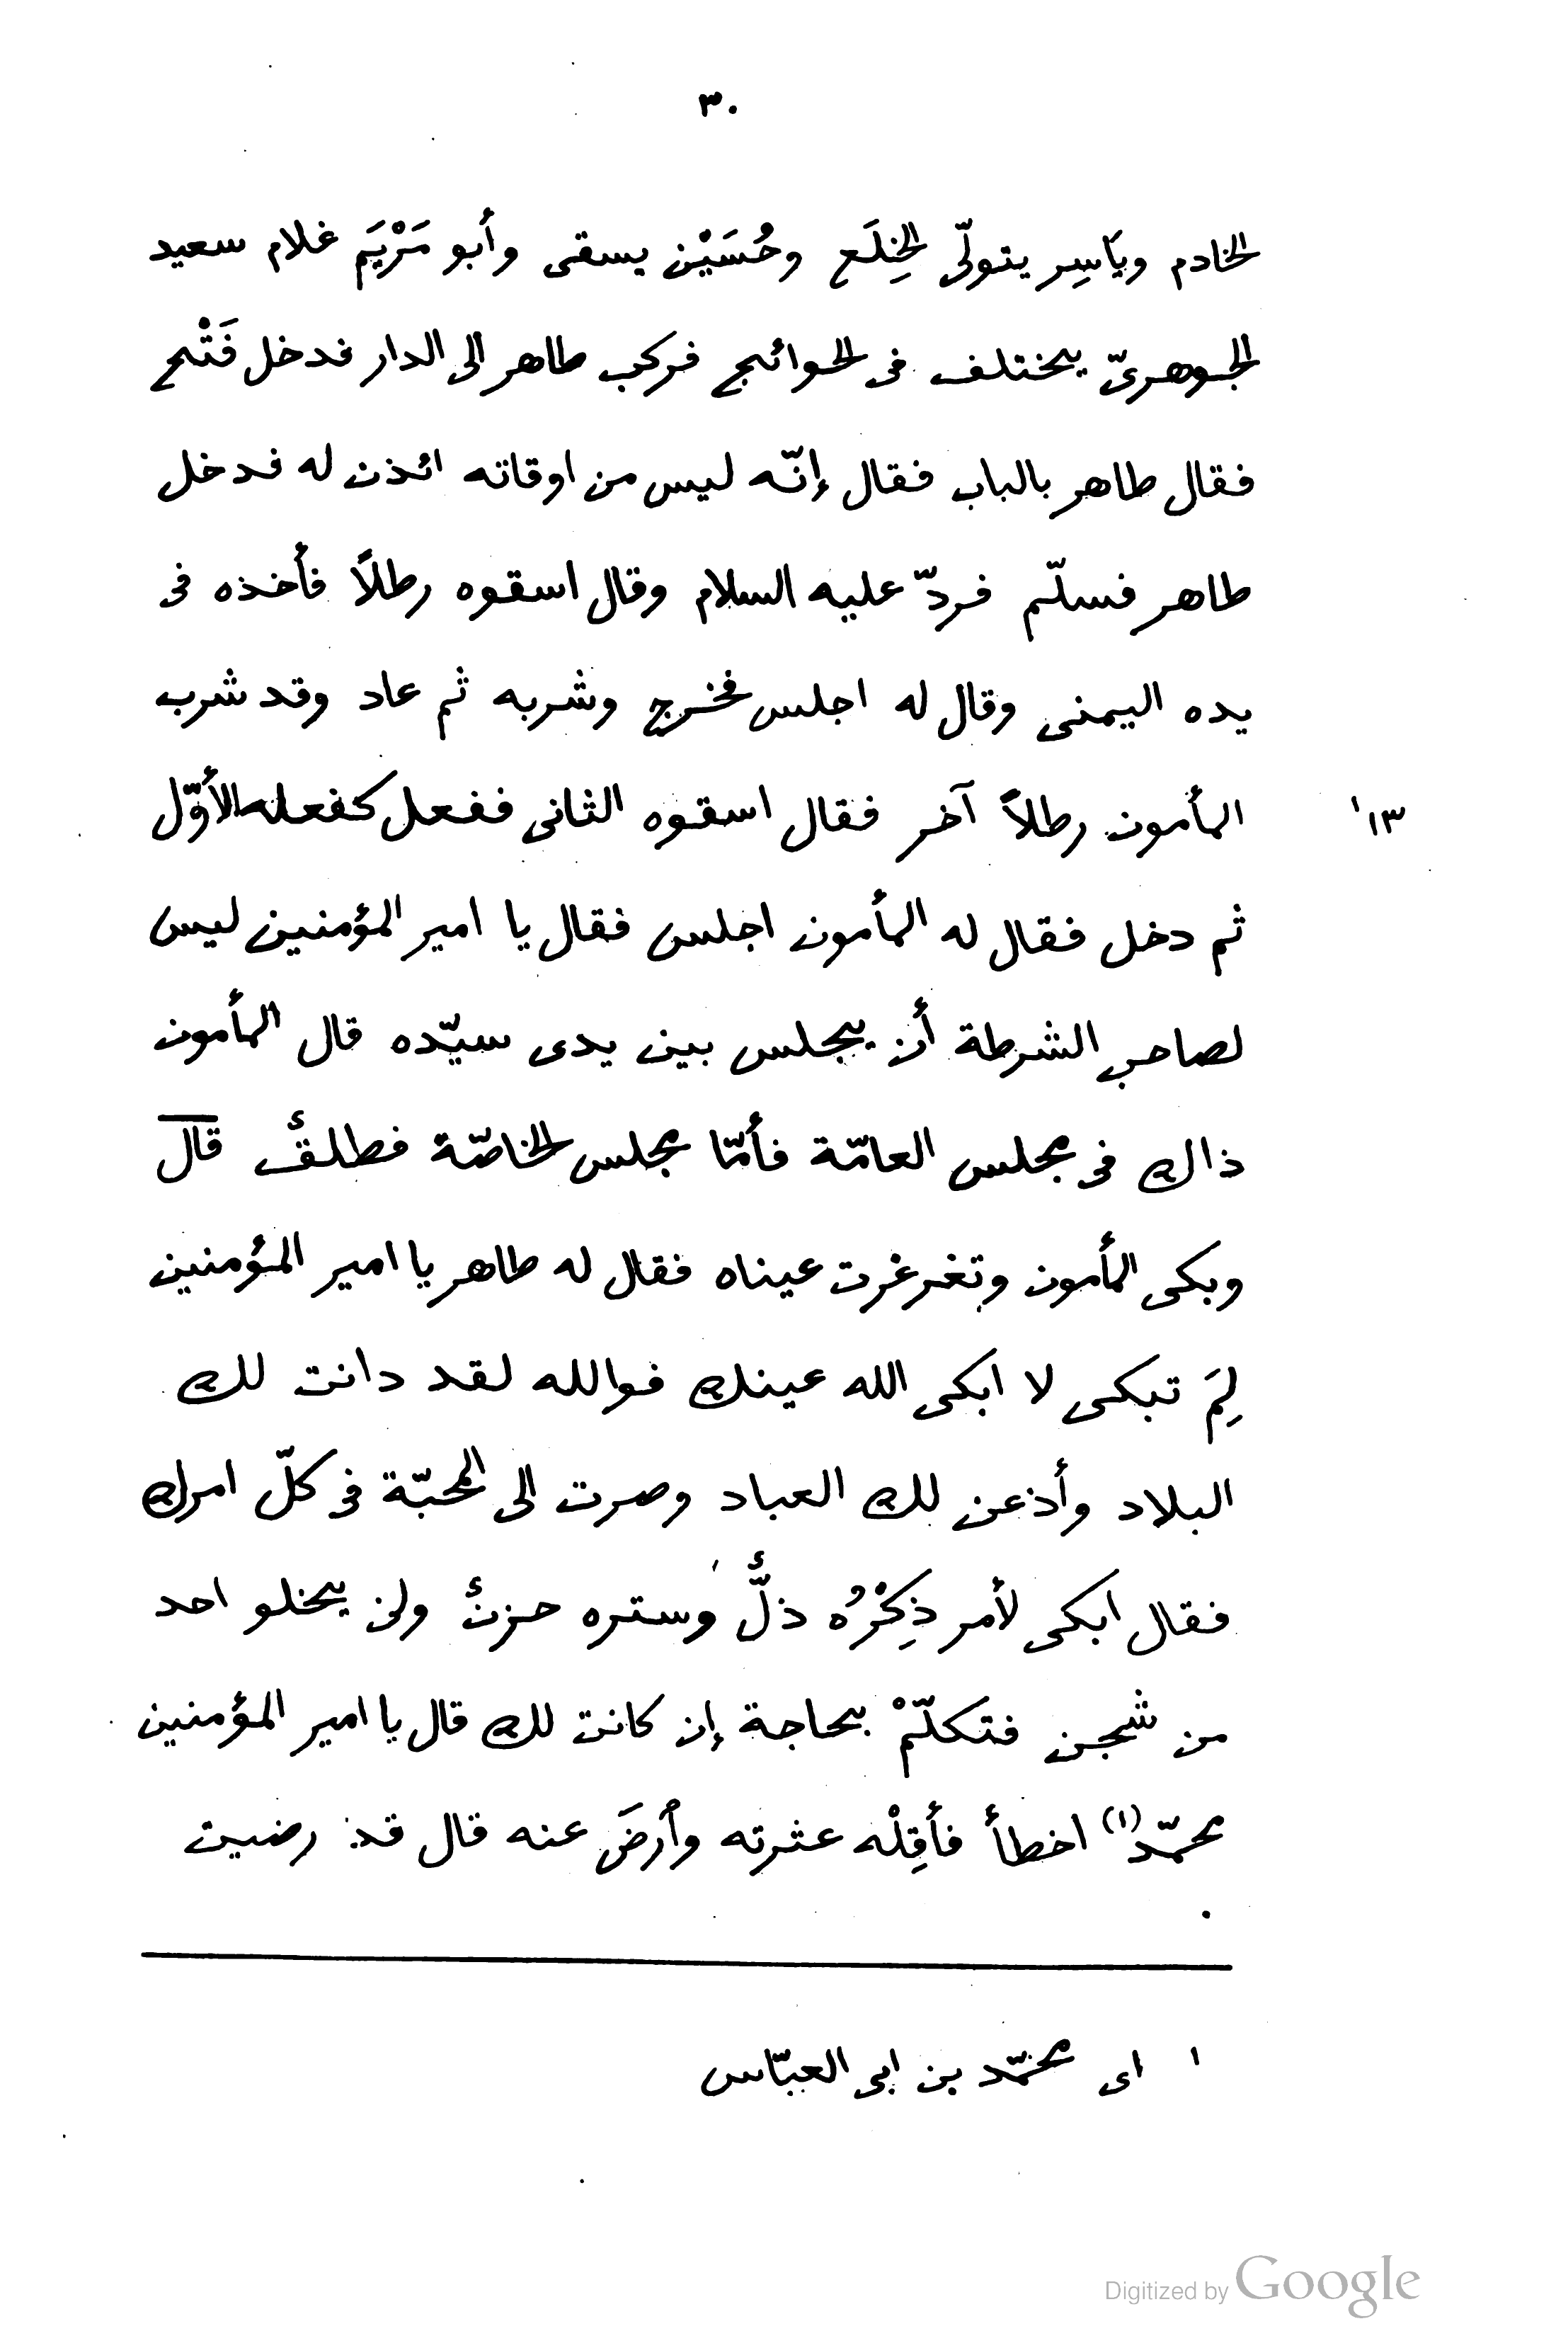 ٣٠
الخادم ويَاسِر يتولّى الخِلَع وحُسَيْن يسقى وأبو مَرْيَم غلام سعيد
الجوهرىّ يختلف فى الحوائج فركب طاهر الى الدار فدخل فَتْح
فقال طاهر بالباب فقال إنّه ليس من اوقاته ائذن له فدخل
طاهر فسلّم فردّ عليه السلام وقال اسقوه رطلاً فأخذه فى
يده اليمنى وقال له اجلس فخرج وشربه ثم عاد وقد شرب
المأمون رطلاً آخر فقال اسقوه الثانى ففعل كفعله الأوّل
ثم دخل فقال له المأمون اجلس فقال يا امير المؤمنين ليس
لصاحب الشرطة أن يجلس بين يدى سيّده قال المأمون
ذاك فى مجلس العامّة فأمّا مجلس الخاصّة فطلقٌ قال
وبكى المأمون وتغرغرت عيناه فقال له طاهر يا امير المؤمنين
لِمَ تبكى لا ابكى الله عينك فوالله لقد دانت لك
البلاد وأذعن لك العباد وصرت الى المحبّة فى كلّ امرك
فقال ابكى لأمر ذِكْرُه ذلٌّ وستره حزنٌ ولن يخلو احد
من شجن فتكلّمْ بحاجة إن كانت لك قال يا امير المؤمنين
محمّد(١) اخطأ فأقِلْه عثرته وأرضَ عنه قال قد رضيت
١ اى محمّد بن ابى العبّاس
Digitized by Google